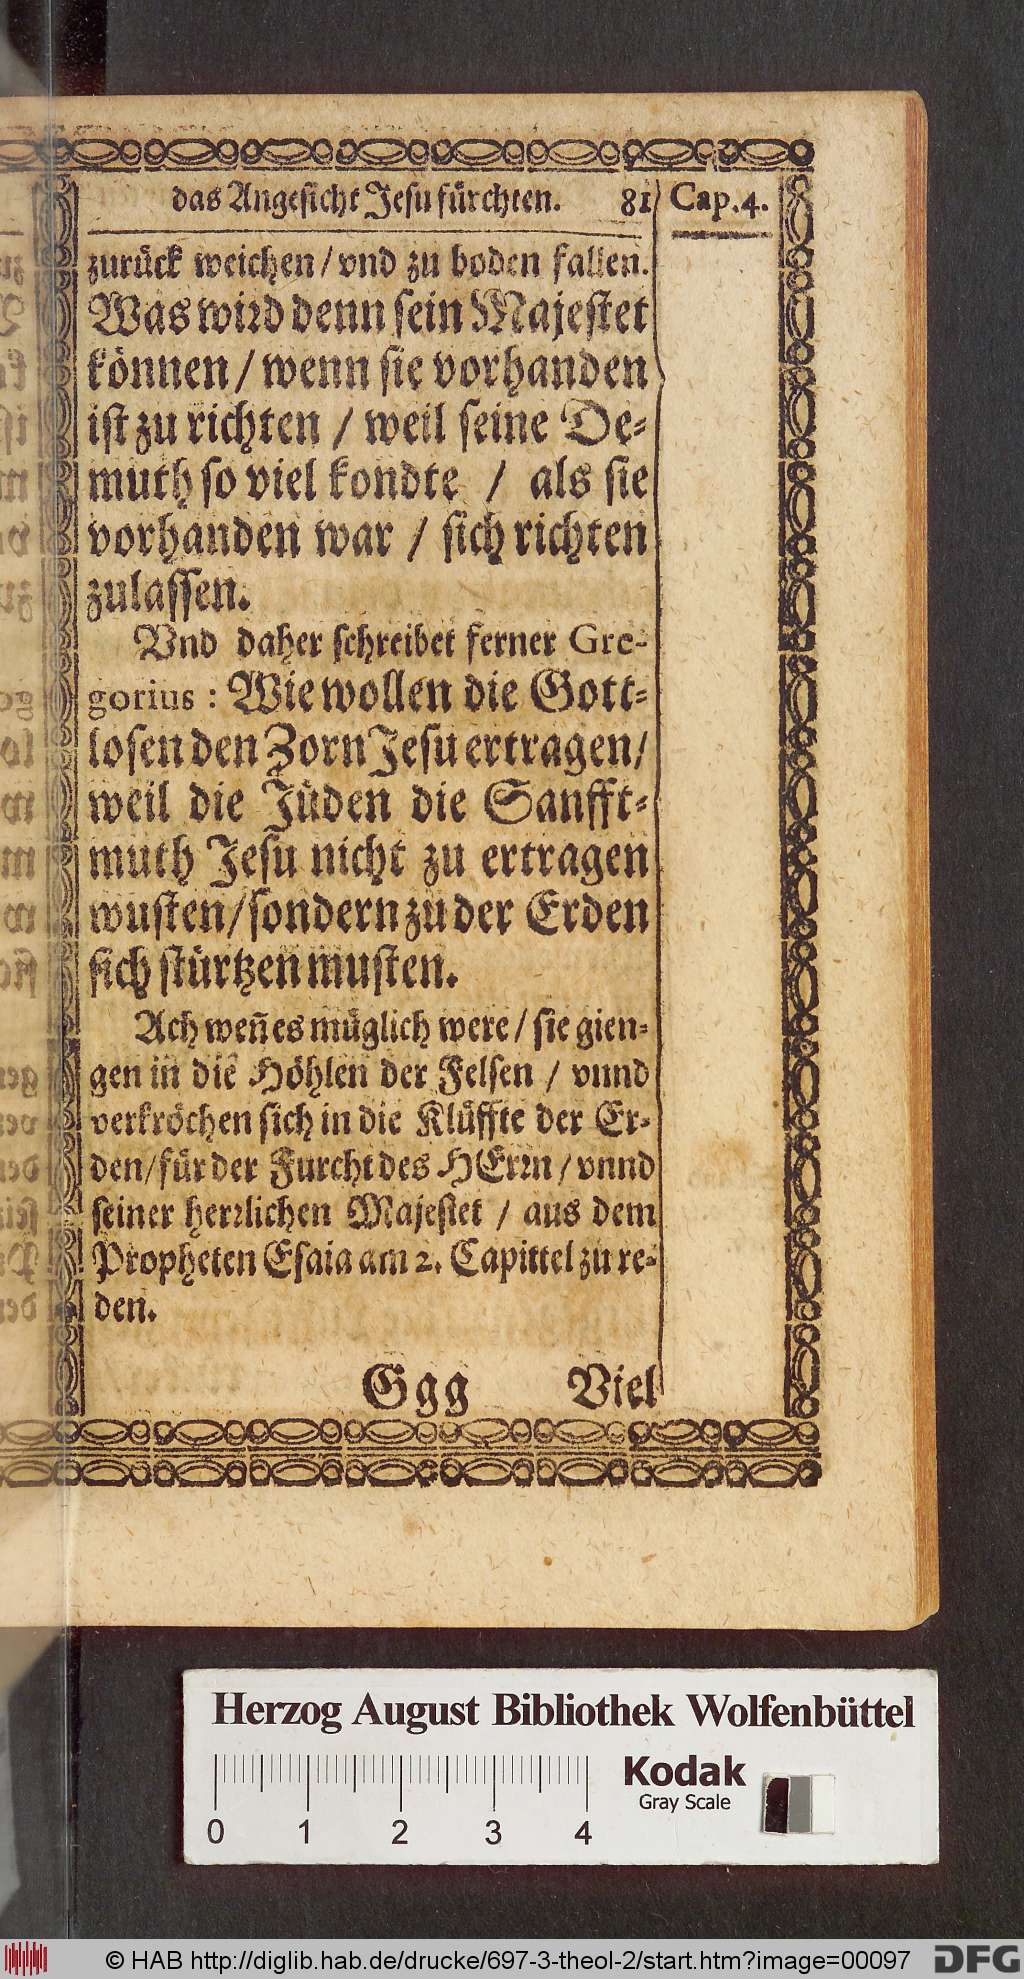 das Angesicht Jesu fürchten. 81 Cap. 4.
zurück weichen / vnd zu boden fallen.
Was wird denn sein Majestet
können / wenn sie vorhanden
ist zu richten / weil seine De-
muth so viel kondte / als sie
vorhanden war / sich richten
zulassen.
Vnd daher schreibet ferner Gre-
gorius : Wie wollen die Gott-
losen den Zorn Jesu ertragen /
weil die Jüden die Sanfft-
muth Jesu nicht zu ertragen
wusten / sondern zu der Erden
sich stürtzen musten.
Ach weñ es müglich were / sie gien-
gen in die Höhlen der Felsen / vnnd
verkröchen sich in die Klüffte der Er-
den / für der Furcht des HErrn / vnnd
seiner herrlichen Majestet / aus dem
Propheten Esaia am 2. Capittel zu re-
den.
Ggg Viel
Herzog August Bibliothek Wolfenbüttel
Kodak
Gray Scale
0 1 2 3 4
© HAB http://diglib.hab.de/drucke/697-3-theol-2/start.htm?image=00097 DFG